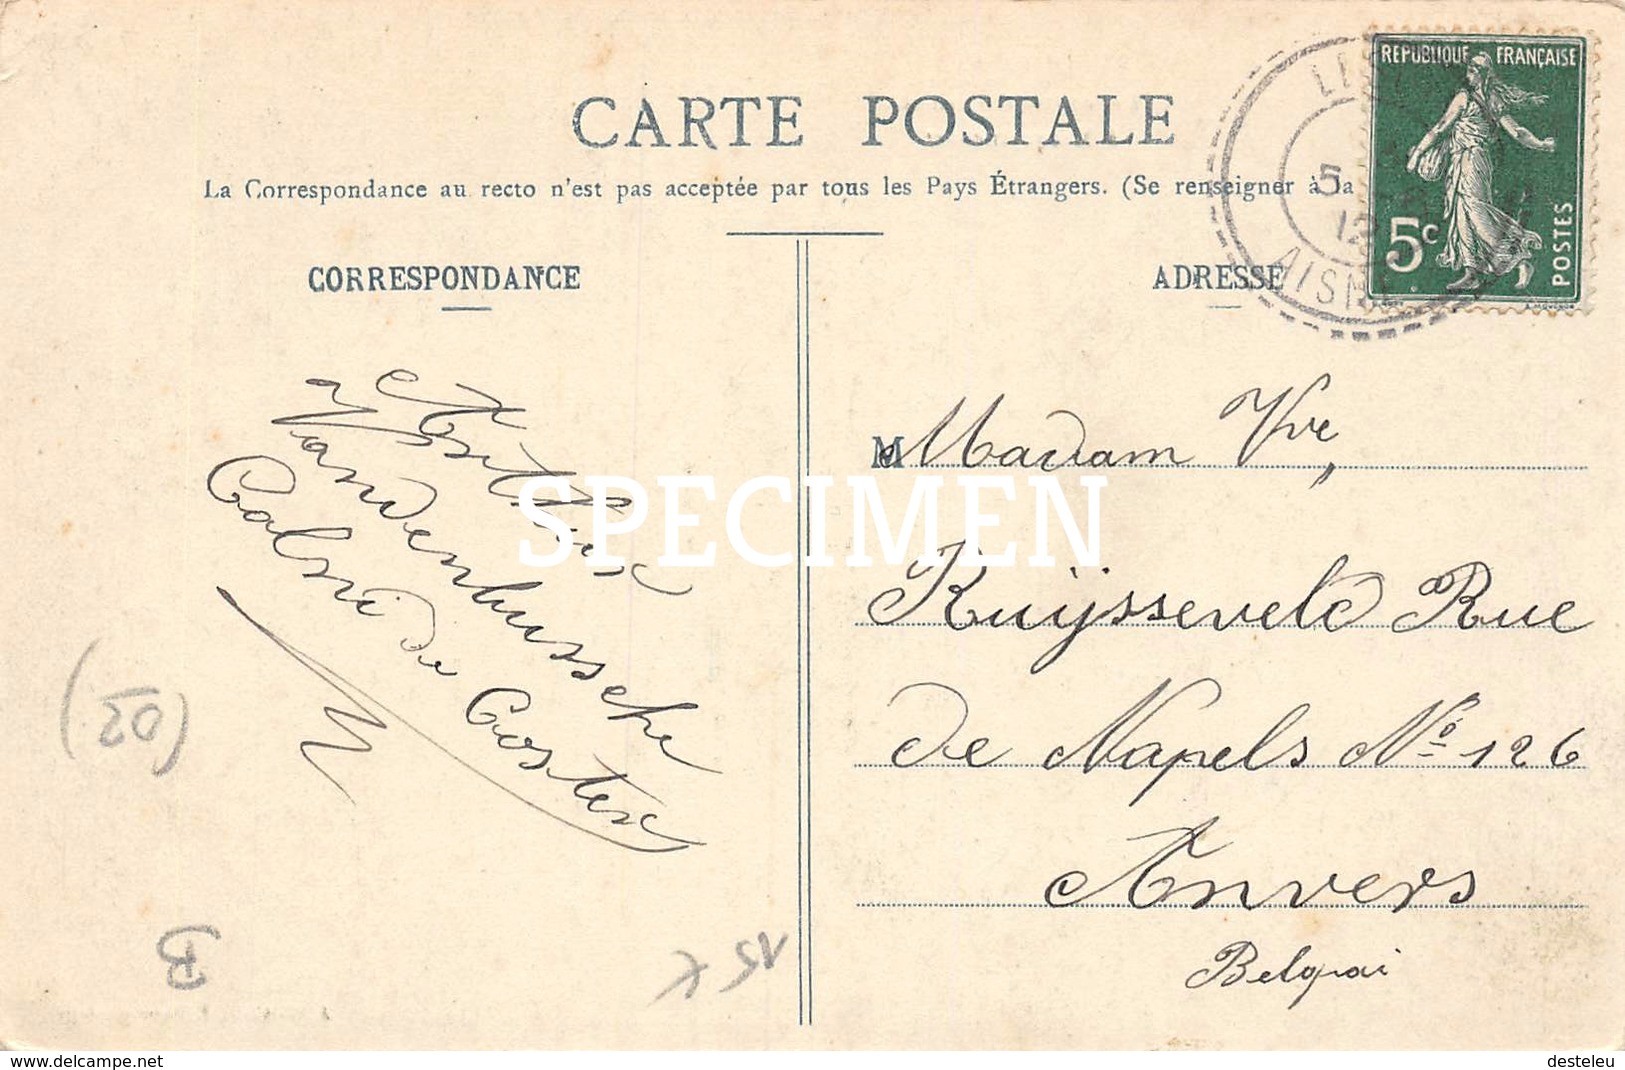 CARTE POSTALE
La Correspondance au recto n'est pas acceptée par tous les Pays Étrangers. (Se renseigner à la
REPUBLIQUE FRANÇAISE
5c
POSTES
5
12
AISNE
CORRESPONDANCE
ADRESSE
Vandenbussche
de Coster
M Madam Vve,
Ruijsseveld Rue
de Napels No 126
Anvers
Belgrai
SPECIMEN
(02)
B
15 €
www.delcampe.net
desteleu